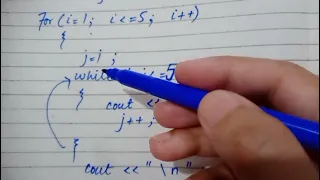 For (i=1; i<=5; i++)
{
j=1 ;
while <=5
{
cout <<
j++ ;
{
cout << "\n"